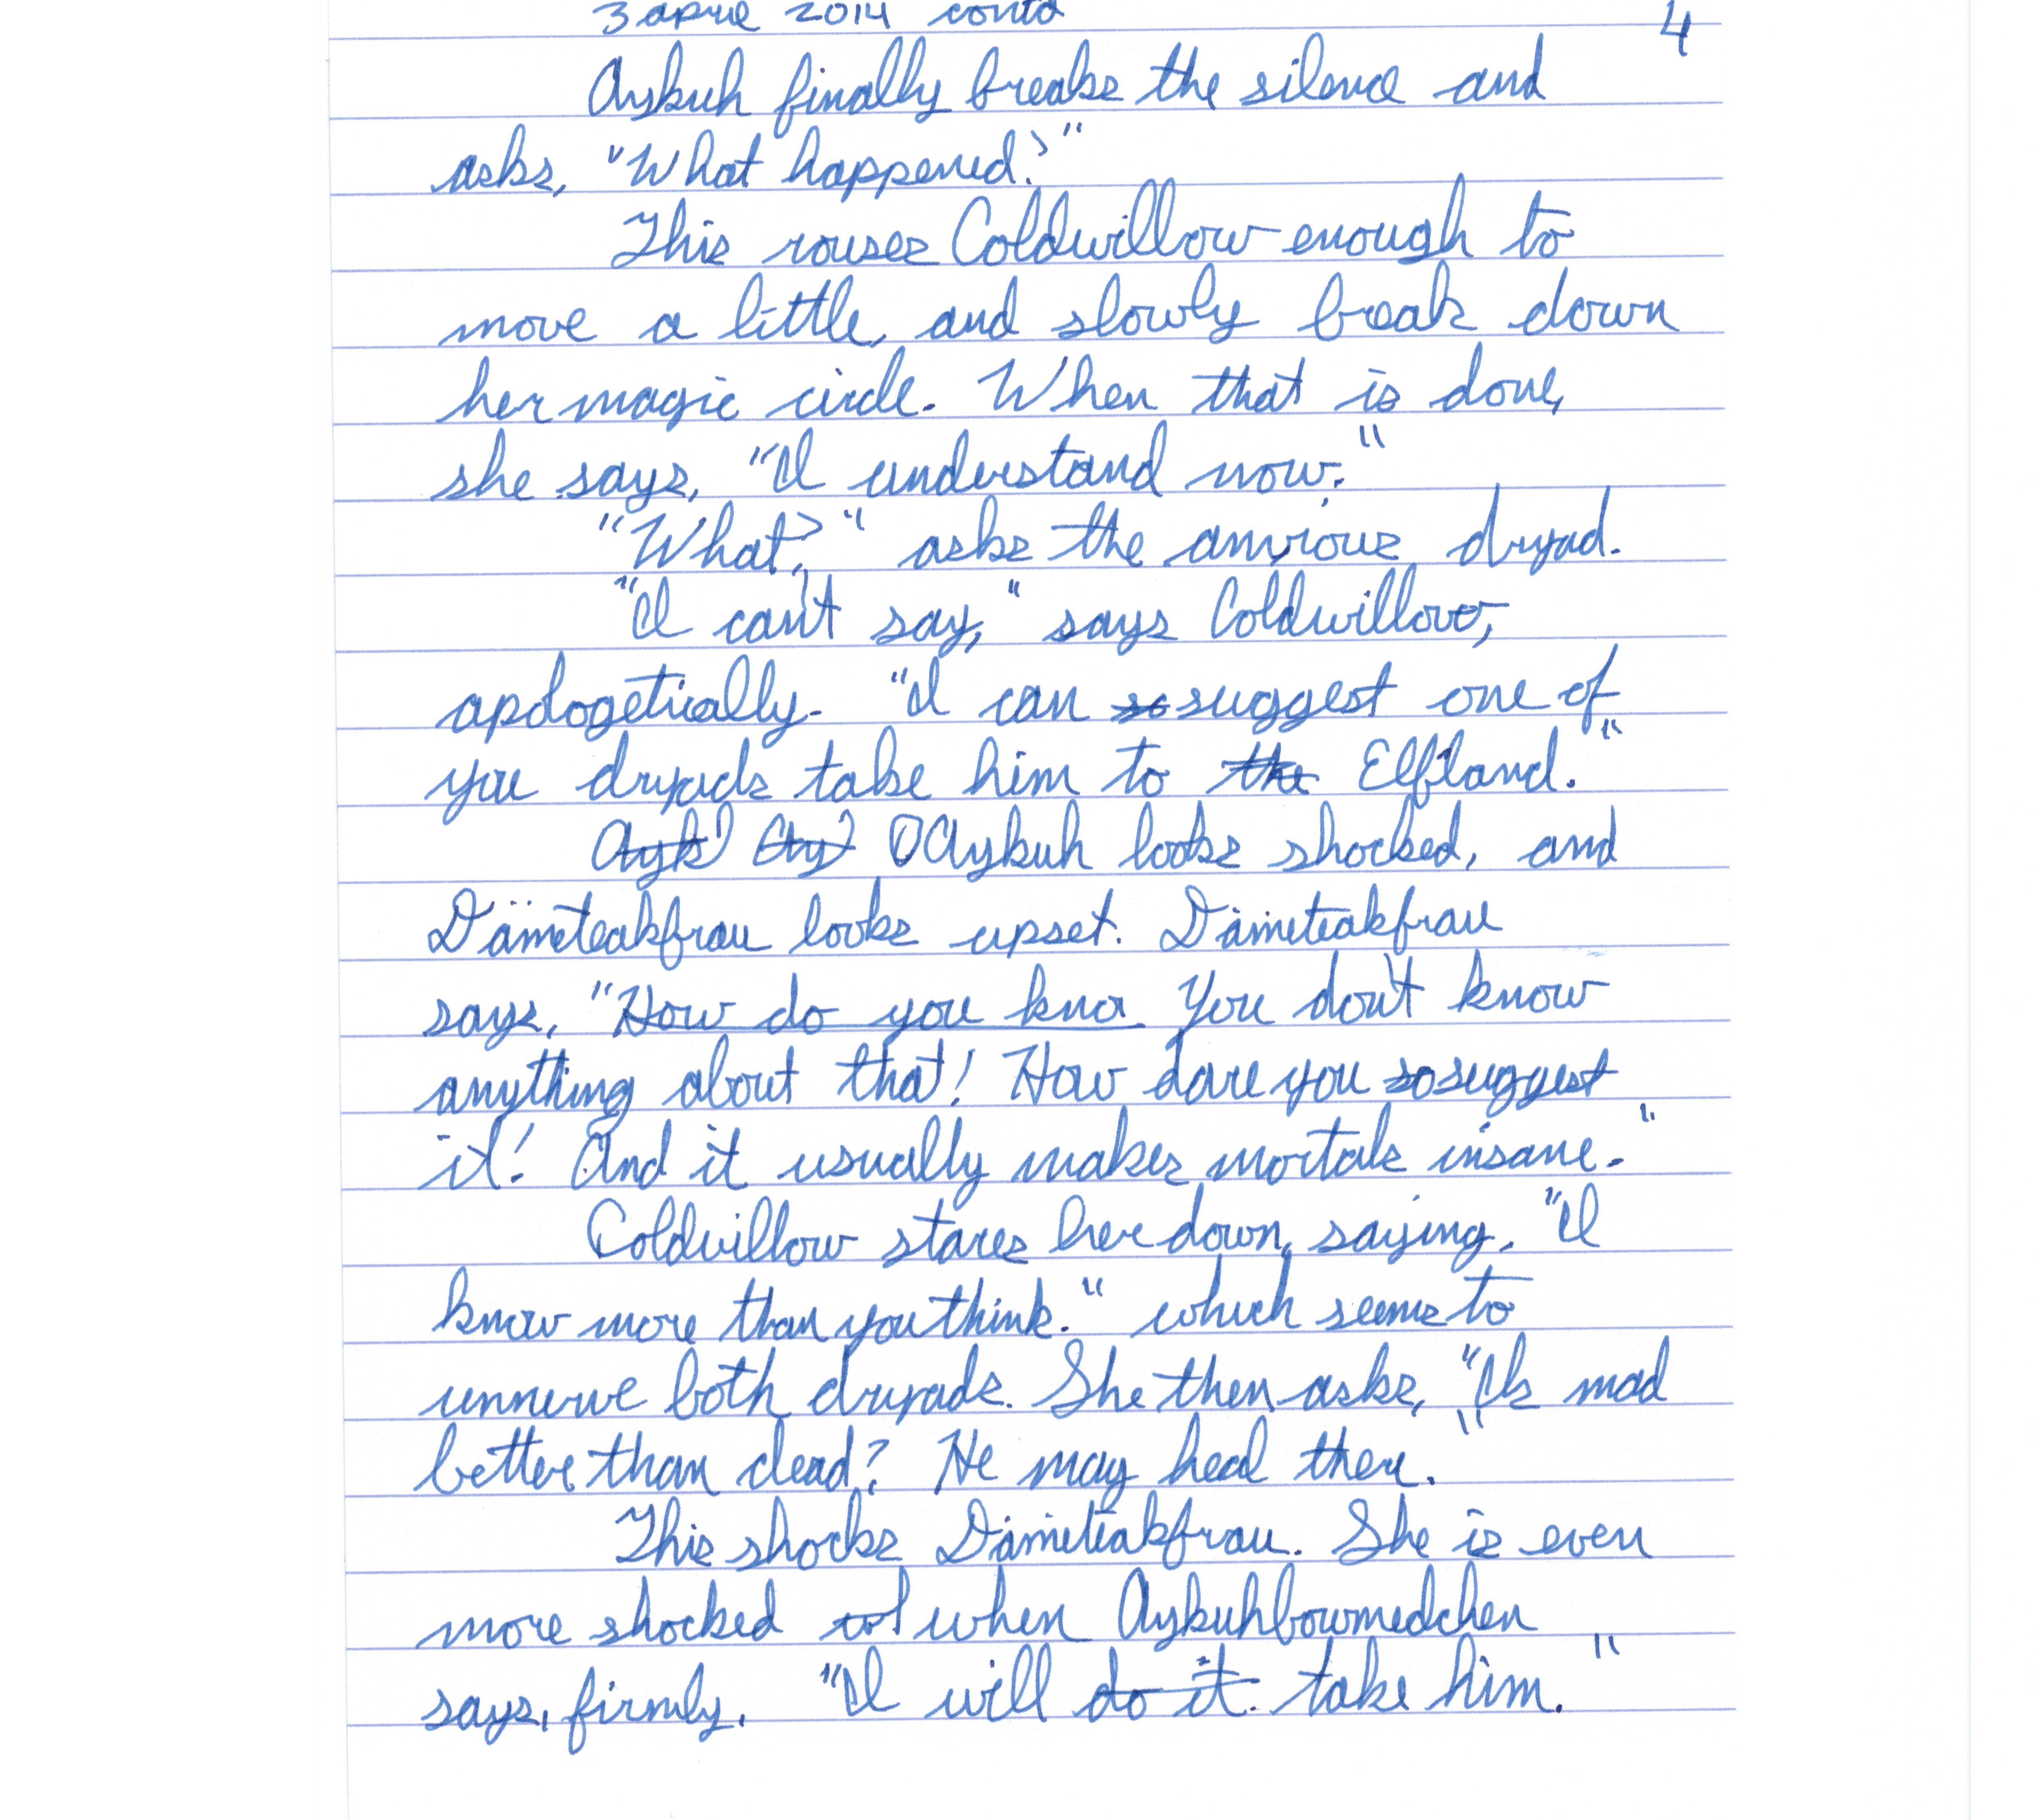 3 april 2014 contd 4
Aykuh finally breaks the silence and
asks, "What happened?"
This rouses Coldwillow enough to
move a little, and slowly break down
her magic circle. When that is done,
she says, "I understand now."
"What?" asks the anxious dryad.
"I can't say," says Coldwillow,
apologetically. "I can so suggest one of
you dryads take him to the Elfland."
Ayk Ay Aykuh looks shocked, and
Dämeteakfrau looks upset. Dämeteakfrau
says, "How do you kno You don't know
anything about that! How dare you so suggest
it! And it usually makes mortals insane."
Coldwillow stares her down, saying, "I
know more than you think." which seems to
unnerve both dryads. She then asks, "Is mad
better than dead? He may heal there."
This shocks Dämeteakfrau. She is even
more shocked when Aykuhbowmedchen
says, firmly, "I will do it. take him."